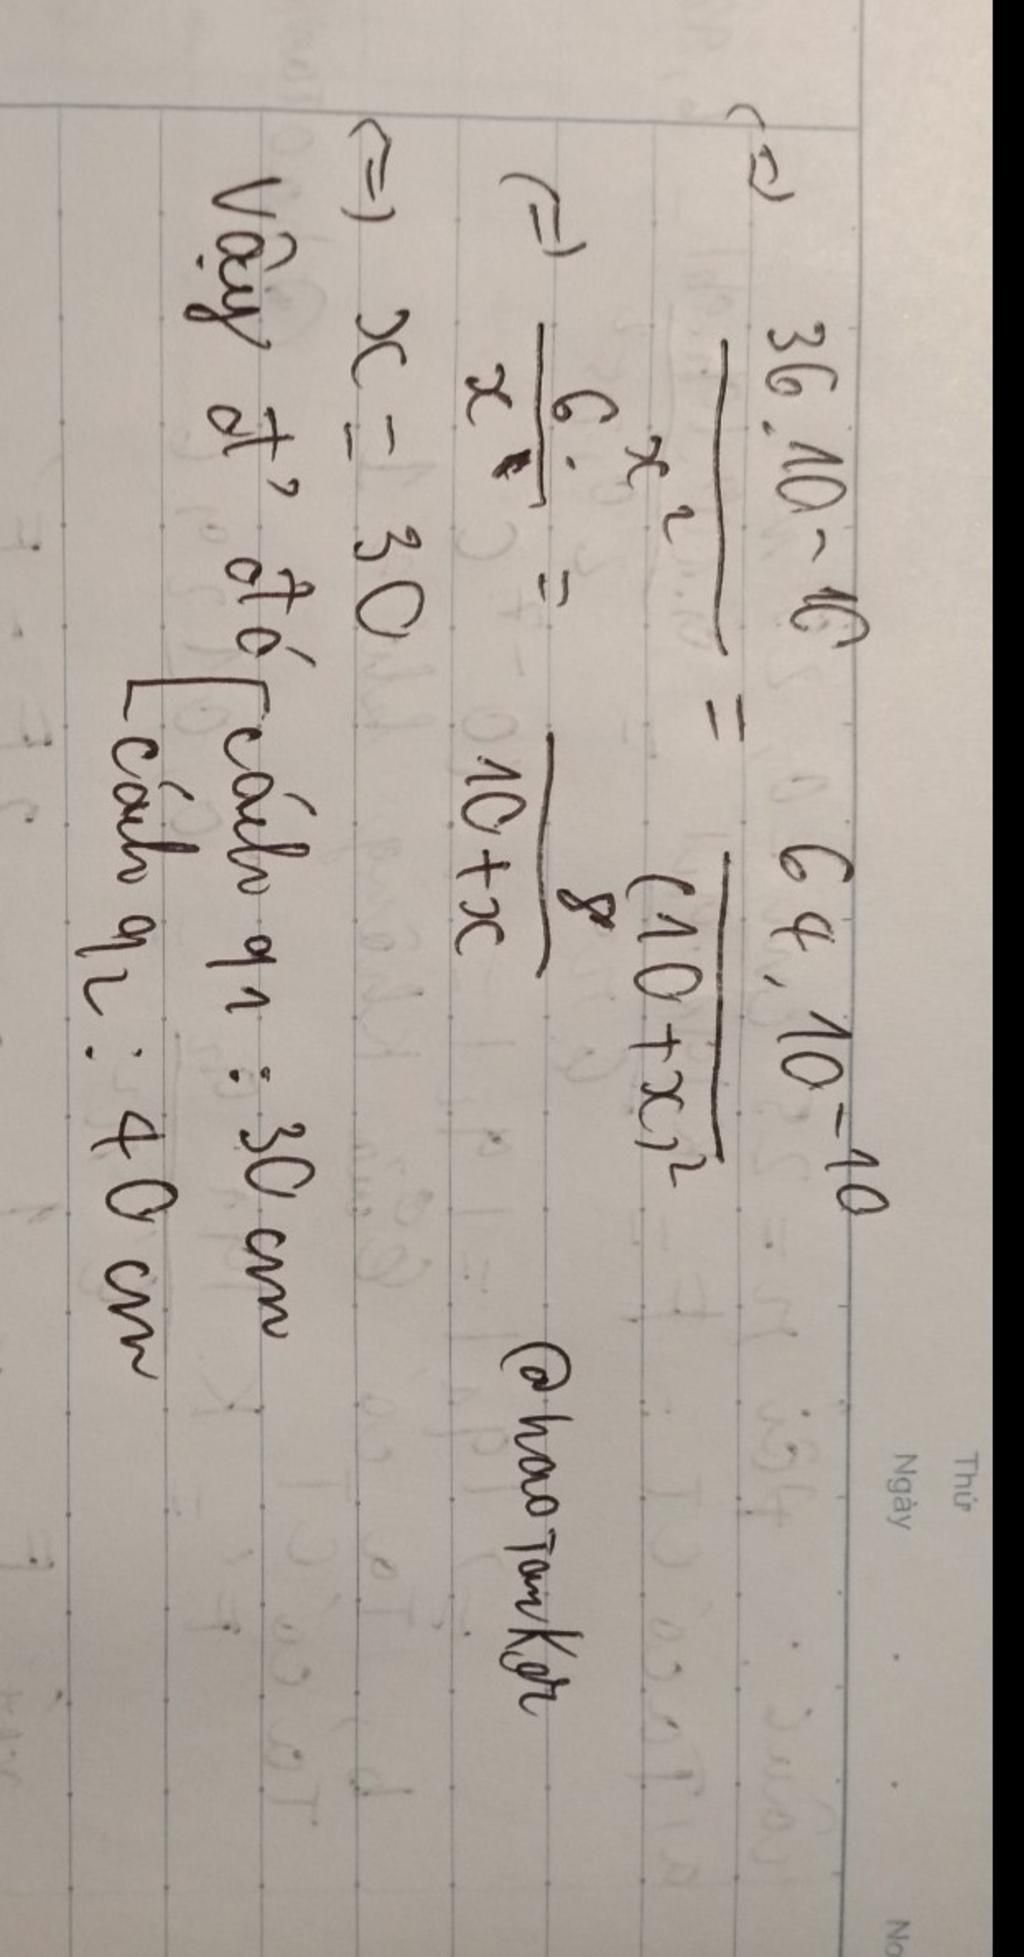 Thứ
Ngày
No
(=) 36.10^-10 / x² = 64.10^-10 / (10+x)²
(=) 6 / x = 8 / 10+x
@haotanker
(=) x = 30
Vậy đ' đó [ cách q1 : 30 cm
[ cách q2 : 40 cm